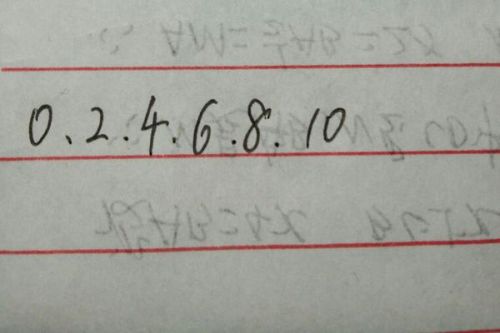 0、2.4.6.8.10